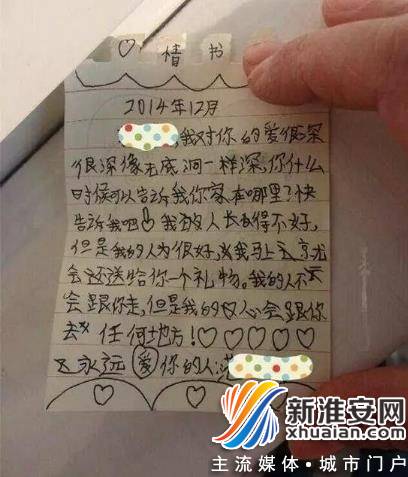 ♡情书
2014年12月
我对你的爱很深
很深像无底洞一样深,你什么
时候可以告诉我你家在哪里?快
告诉我吧!我的人长的得不好,
但是我的人为很好,我马上
会还送给你一个礼物。我的人不
会跟你走,但是我的心会跟你
去任何地方!♡♡♡♡♡
永远爱你的人:
新淮安网
xhuaian.com
主流媒体·城市门户